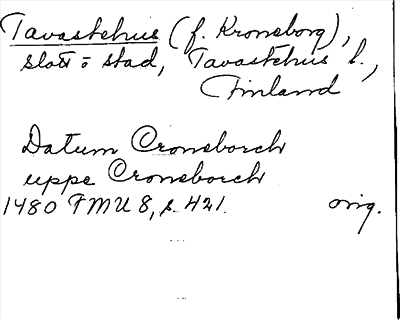 Tavastehus (f. Kronoborg),
slott o stad, Tavastehus l.,
Finland
Datum Cronoborch
uppe Cronoborch
1480 FMU 8, s. 421. orig.